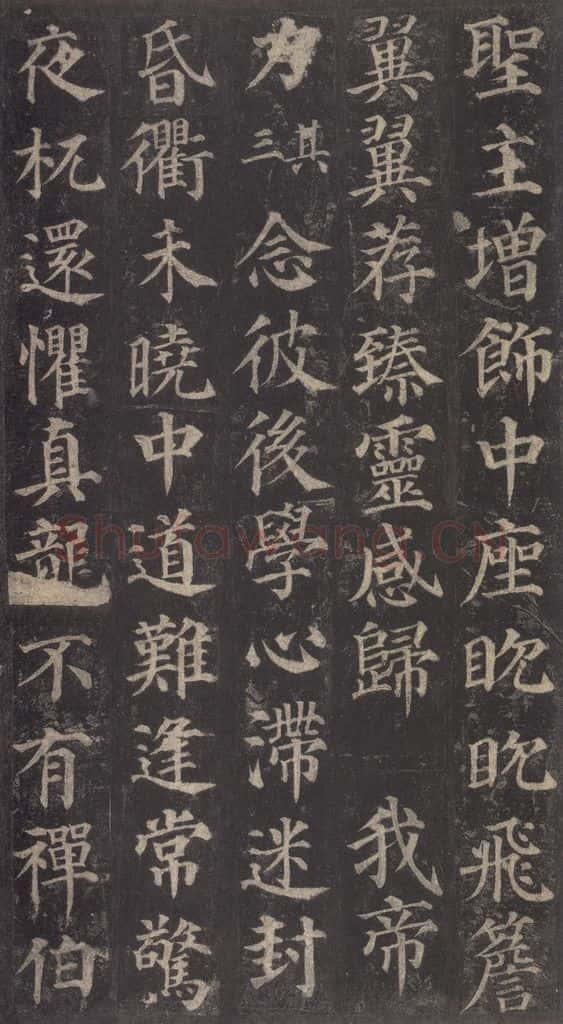 聖主增飾中座眈眈飛簷
翼翼荐臻靈感歸 我帝
力其三念彼後學心滯迷封
昏衢未曉中道難逢常驚
夜杌還懼真龍不有禪伯
Shufawang.CN